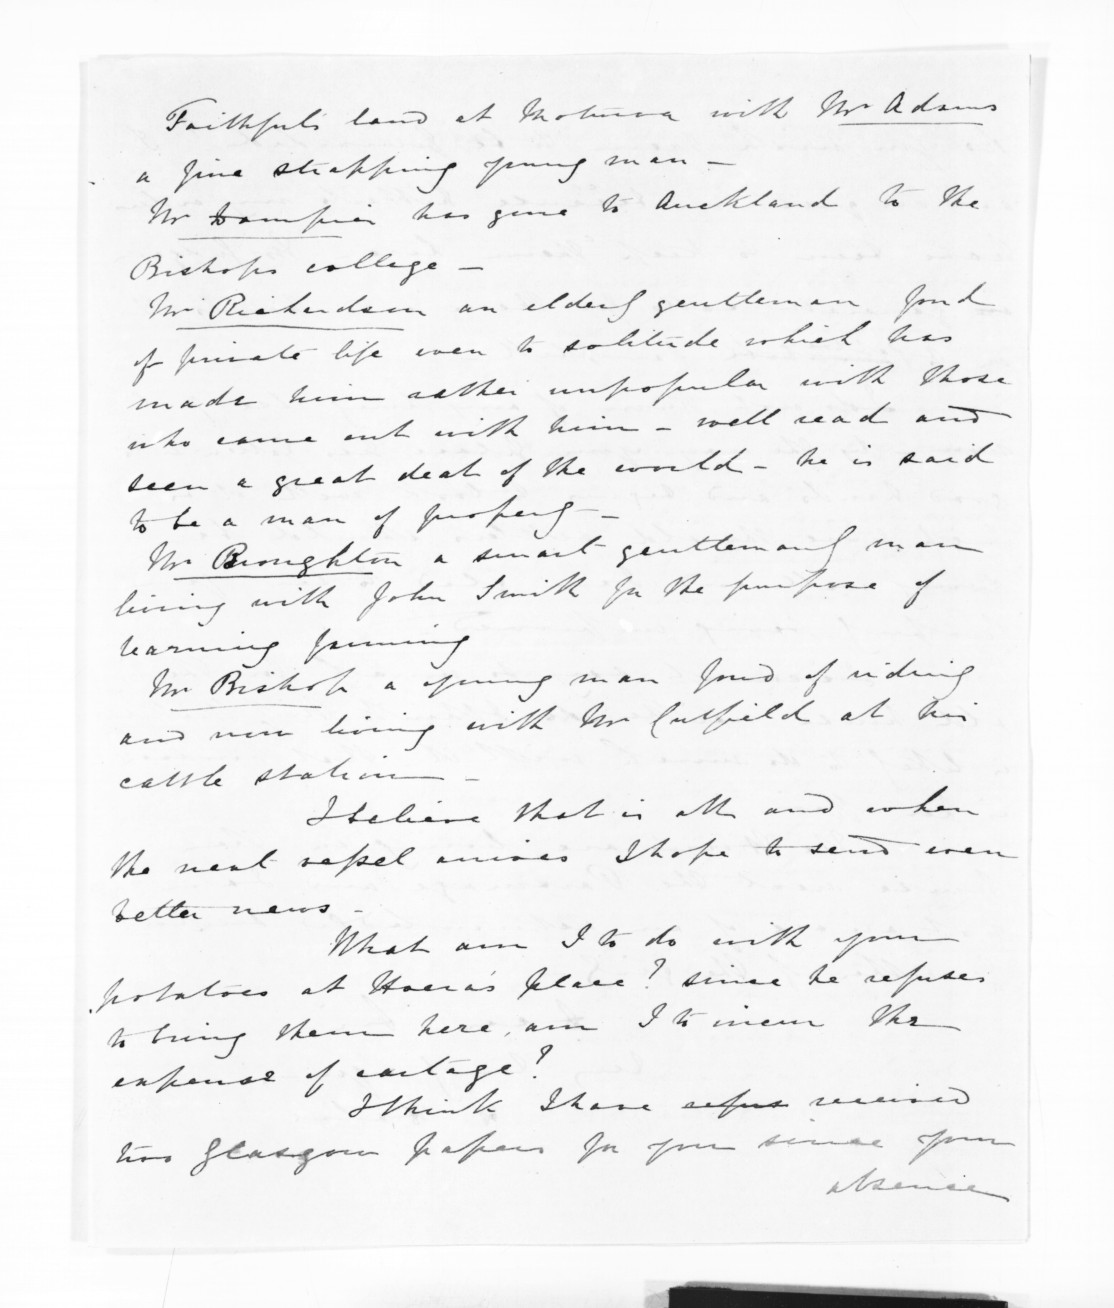 Faithful's land at Moturoa with Mr Adams
a fine strapping young man —
Mr Dampier has gone to Auckland to the
Bishops college —
Mr Richardson an elderly gentleman fond
of private life even to solitude which has
made him rather unpopular with those
who came out with him — well read and
seen a great deal of the world — he is said
to be a man of property —
Mr Broughton a smart gentlemanly man
living with John Smith for the purpose of
learning farming
Mr Bishop a young man fond of riding
and now living with Mr Cutfield at his
cattle station —
I believe that is all and when
the next vessel arrives I hope to send even
better news —
What am I to do with your
potatoes at Hoera's place? since he refuses
to bring them here, am I to incur the
expense of cartage?
I think I have refus received
two Glasgow papers for you since your
absence